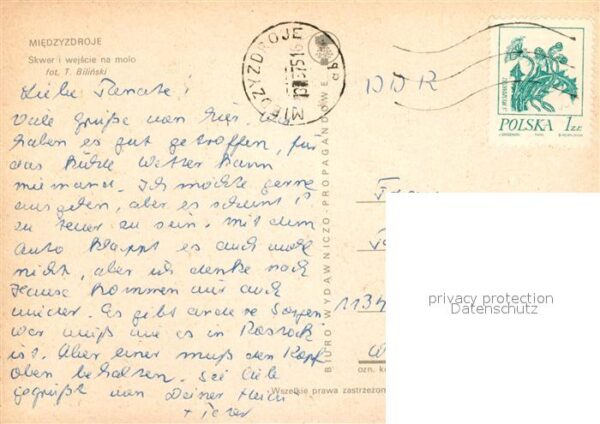 MIĘDZYZDROJE
Skwer i wejście na molo
fot. T. Biliński
Liebe Renate!
Viele Grüße von hier. Wir
haben es gut getroffen, für
das kühle Wetter kann
niemand. Ich möchte gerne
ausgehen, aber es scheint
zu teuer zu sein. Mit dem
Auto klappt es auch noch
nicht, aber ich denke nach
Hause kommen wir auch
wieder. Es gibt andere Sorgen
wer weiß wie es in Rostock
ist. Aber einer muß den Kopf
oben behalten. Sei lieb
gegrüßt von Deiner
+ Peter
MIĘDZYZDROJE
DDR
POLSKA 1 ZŁ
BIURO WYDAWNICZO-PROPAGANDOWE
1134
privacy protection
Datenschutz
Wszelkie prawa zastrzeżon